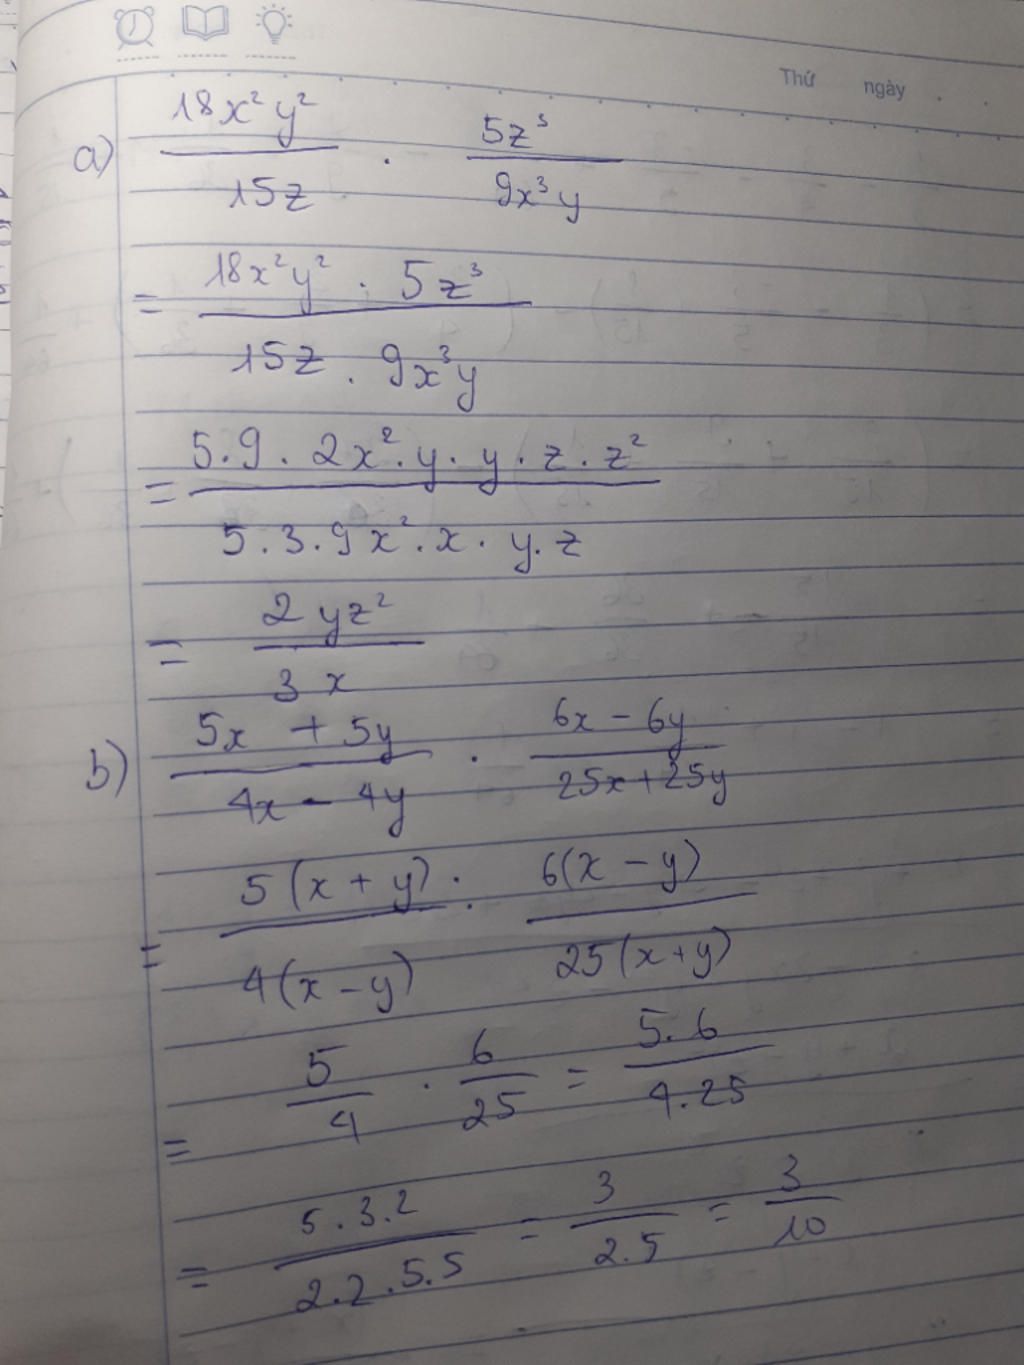 Thứ ngày
a) 18x²y² / 15z . 5z³ / 9x³y
= 18x²y² . 5z³ / 15z . 9x³y
= 5.9.2x².y.y.z.z² / 5.3.9x².x.y.z
= 2yz² / 3x
b) 5x + 5y / 4x - 4y . 6x - 6y / 25x + 25y
= 5(x + y) / 4(x - y) . 6(x - y) / 25(x + y)
= 5 / 4 . 6 / 25 = 5.6 / 4.25
= 5.3.2 / 2.2.5.5 = 3 / 2.5 = 3 / 10